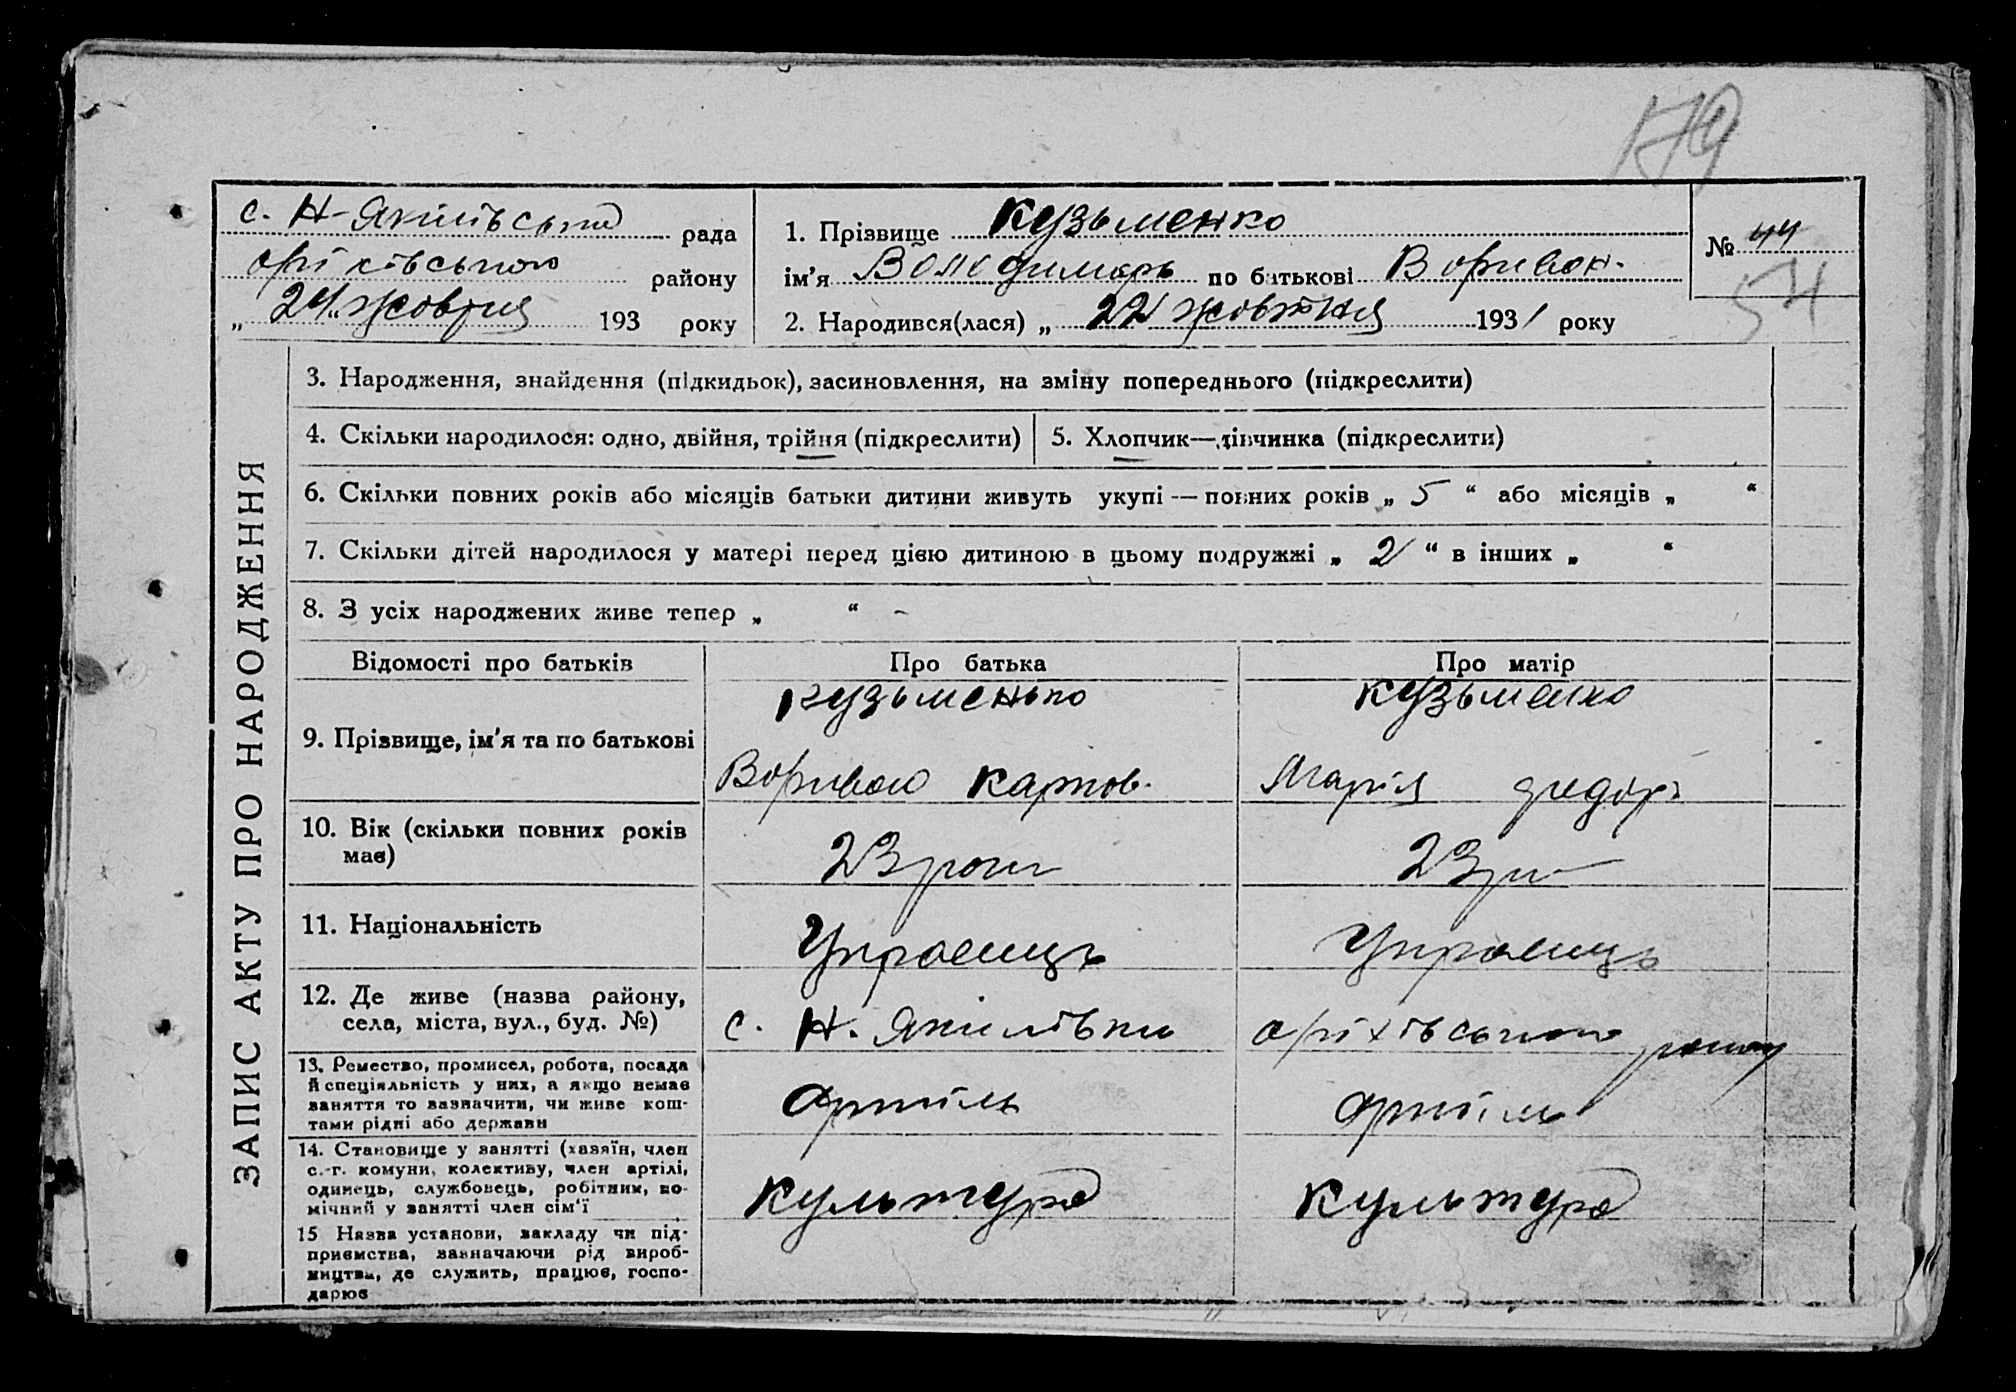 179
с. Н-Якилівська рада
оріхівського району
„ 24 " жовтня 193 року
1. Прізвище Кузьменко
ім'я Володимирь по батькові
2. Народився(лася) „ 22 жовтня 1931 року
№ 44
54
ЗАПИС АКТУ ПРО НАРОДЖЕННЯ
3. Народження, знайдення (підкидьок), засиновлення, на зміну попереднього (підкреслити)
4. Скільки народилося: одно, двійня, трійня (підкреслити) 5. Хлопчик—дівчинка (підкреслити)
6. Скільки повних років або місяців батьки дитини живуть укупі — повних років „ 5 “ або місяців „ “
7. Скільки дітей народилося у матері перед цією дитиною в цьому подружжі „ 2 “ в інших „ “
8. З усіх народжених живе тепер „ “ -
Відомості про батьків Про батька Про матір
9. Прізвище, ім'я та по батькові
Кузьменько
Карпов.
Кузьменко
Марія
10. Вік (скільки повних років
має)
23 роки
23 р
11. Національність
Украєнць
Украєнць
12. Де живе (назва району,
села, міста, вул., буд. №)
с. Н. Якилівка
оріхівського району
13. Ремество, промисел, робота, посада
й спеціяльність у них, а якщо немає
заняття то зазначити, чи живе кош-
тами рідні або держави
Артіль
Артіль
14. Становище у занятті (хазяїн, член
с.-г. комуни, колективу, член артілі,
одинець, службовець, робітник, по-
мічний у занятті член сім'ї
культура
культура
15 Назва установи, закладу чи під-
приємства, зазначаючи рід вироб-
ництва, де служить, працює, госпо-
дарює